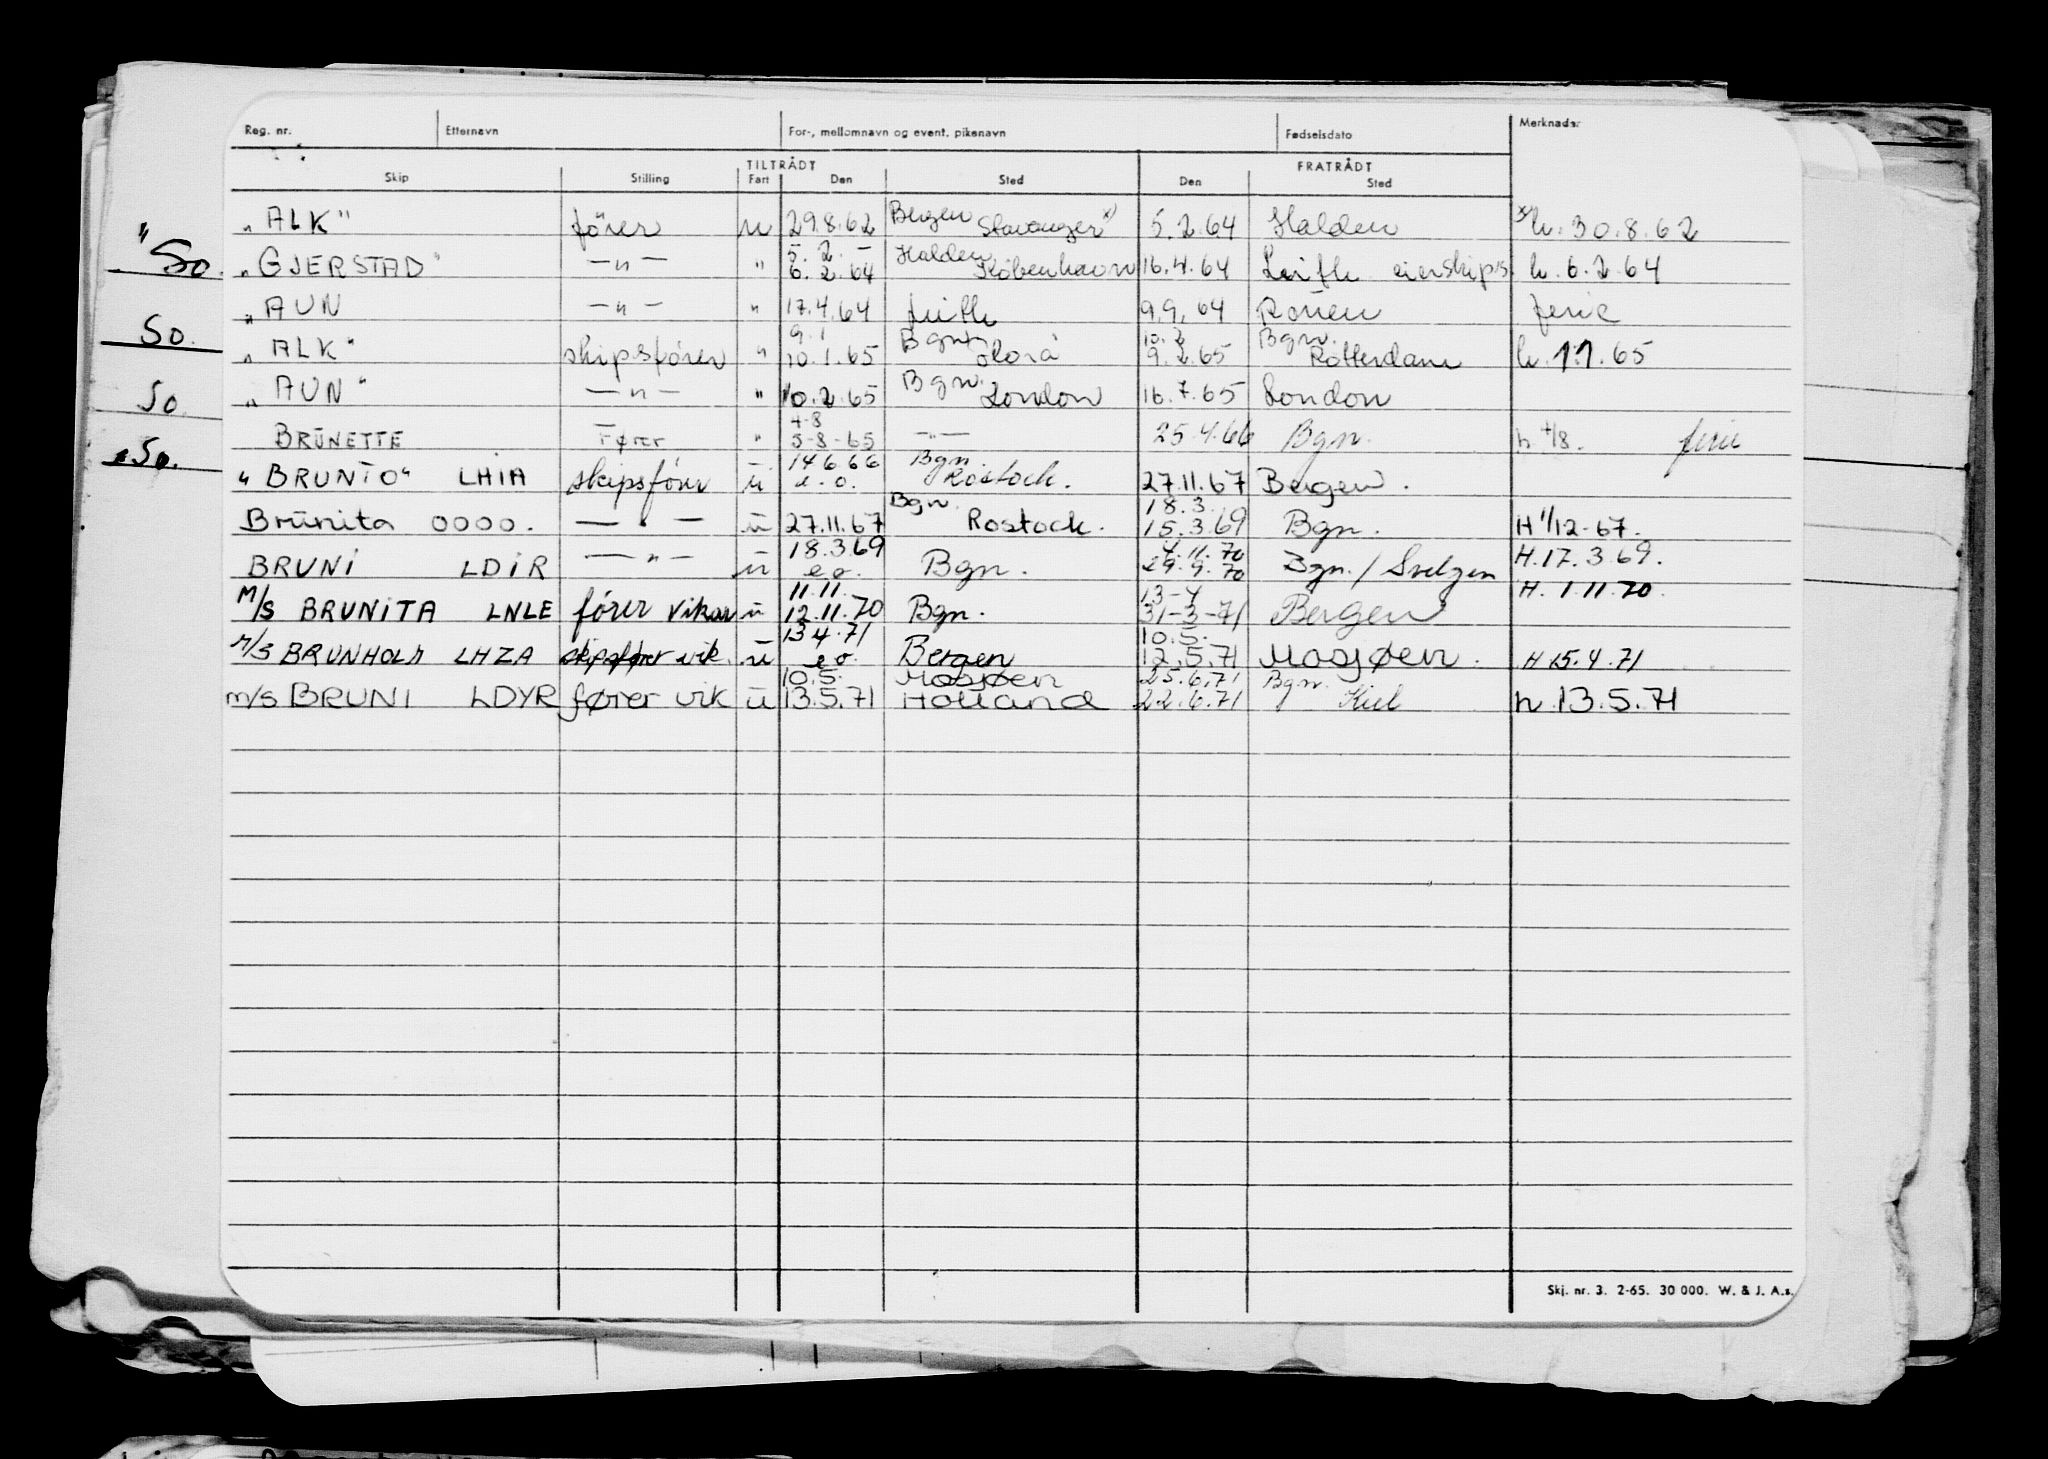 Reg. nr. Etternavn For-, mellomnavn og event. pikenavn Fødselsdato Merknader
TILTRÅDT FRATRÅDT
Skip Stilling Fart Den Sted Den Sted
"ALK" fører u 29.8.62 Bergen Stavanger x) 5.2.64 Halden x) h. 30.8.62
"So. "GJERSTAD" —"— " 5.2.– 6.2.64 Halden København 16.4.64 Leith eierskips h. 6.2.64
"AUN —"— " 17.4.64 Leith 9.9.64 Rouen ferie
So. "ALK" skipsfører " 9.1 10.1.65 Bgn. 10.2 9.2.65 Bgn. Rotterdam h. 11.1.65
So. "AUN" —"— " 10.2.65 Bgn. London 16.7.65 London
BRUNETTE Fører " 4-8 5-8-65 —"— 25.4.66 Bgn. h 4/8. ferie
So. "BRUNTO" LHIA skipsfører u 14.6.66 e.o. Bgn. Rostock. 27.11.67 Bergen.
Brunita OOOO. —"— u 27.11.67 Bgn. Rostock. 18.3. 15.3.69 Bgn. H 1/12-67.
BRUNI LDIR —"— u 18.3.69 e.o. Bgn. 4.11.70 29.9.70 Bgn./Svelgen H. 17.3.69.
M/S BRUNITA LNLE fører vikar u 11.11. 12.11.70 Bgn. 13-4 31-3-71 Bergen H. 1.11.70.
M/S BRUNHOLM LHZA skipsfører vik. u 13.4.71 e.o. Bergen 10.5. 12.5.71 Mosjøen. H 15.4.71
m/s BRUNI LDYR fører vik u 10.5. 13.5.71 Mosjøen Holland 25.6.71 22.6.71 Bgn. Kiel h. 13.5.71
Skj. nr. 3. 2-65. 30 000. W. & J. A.s.